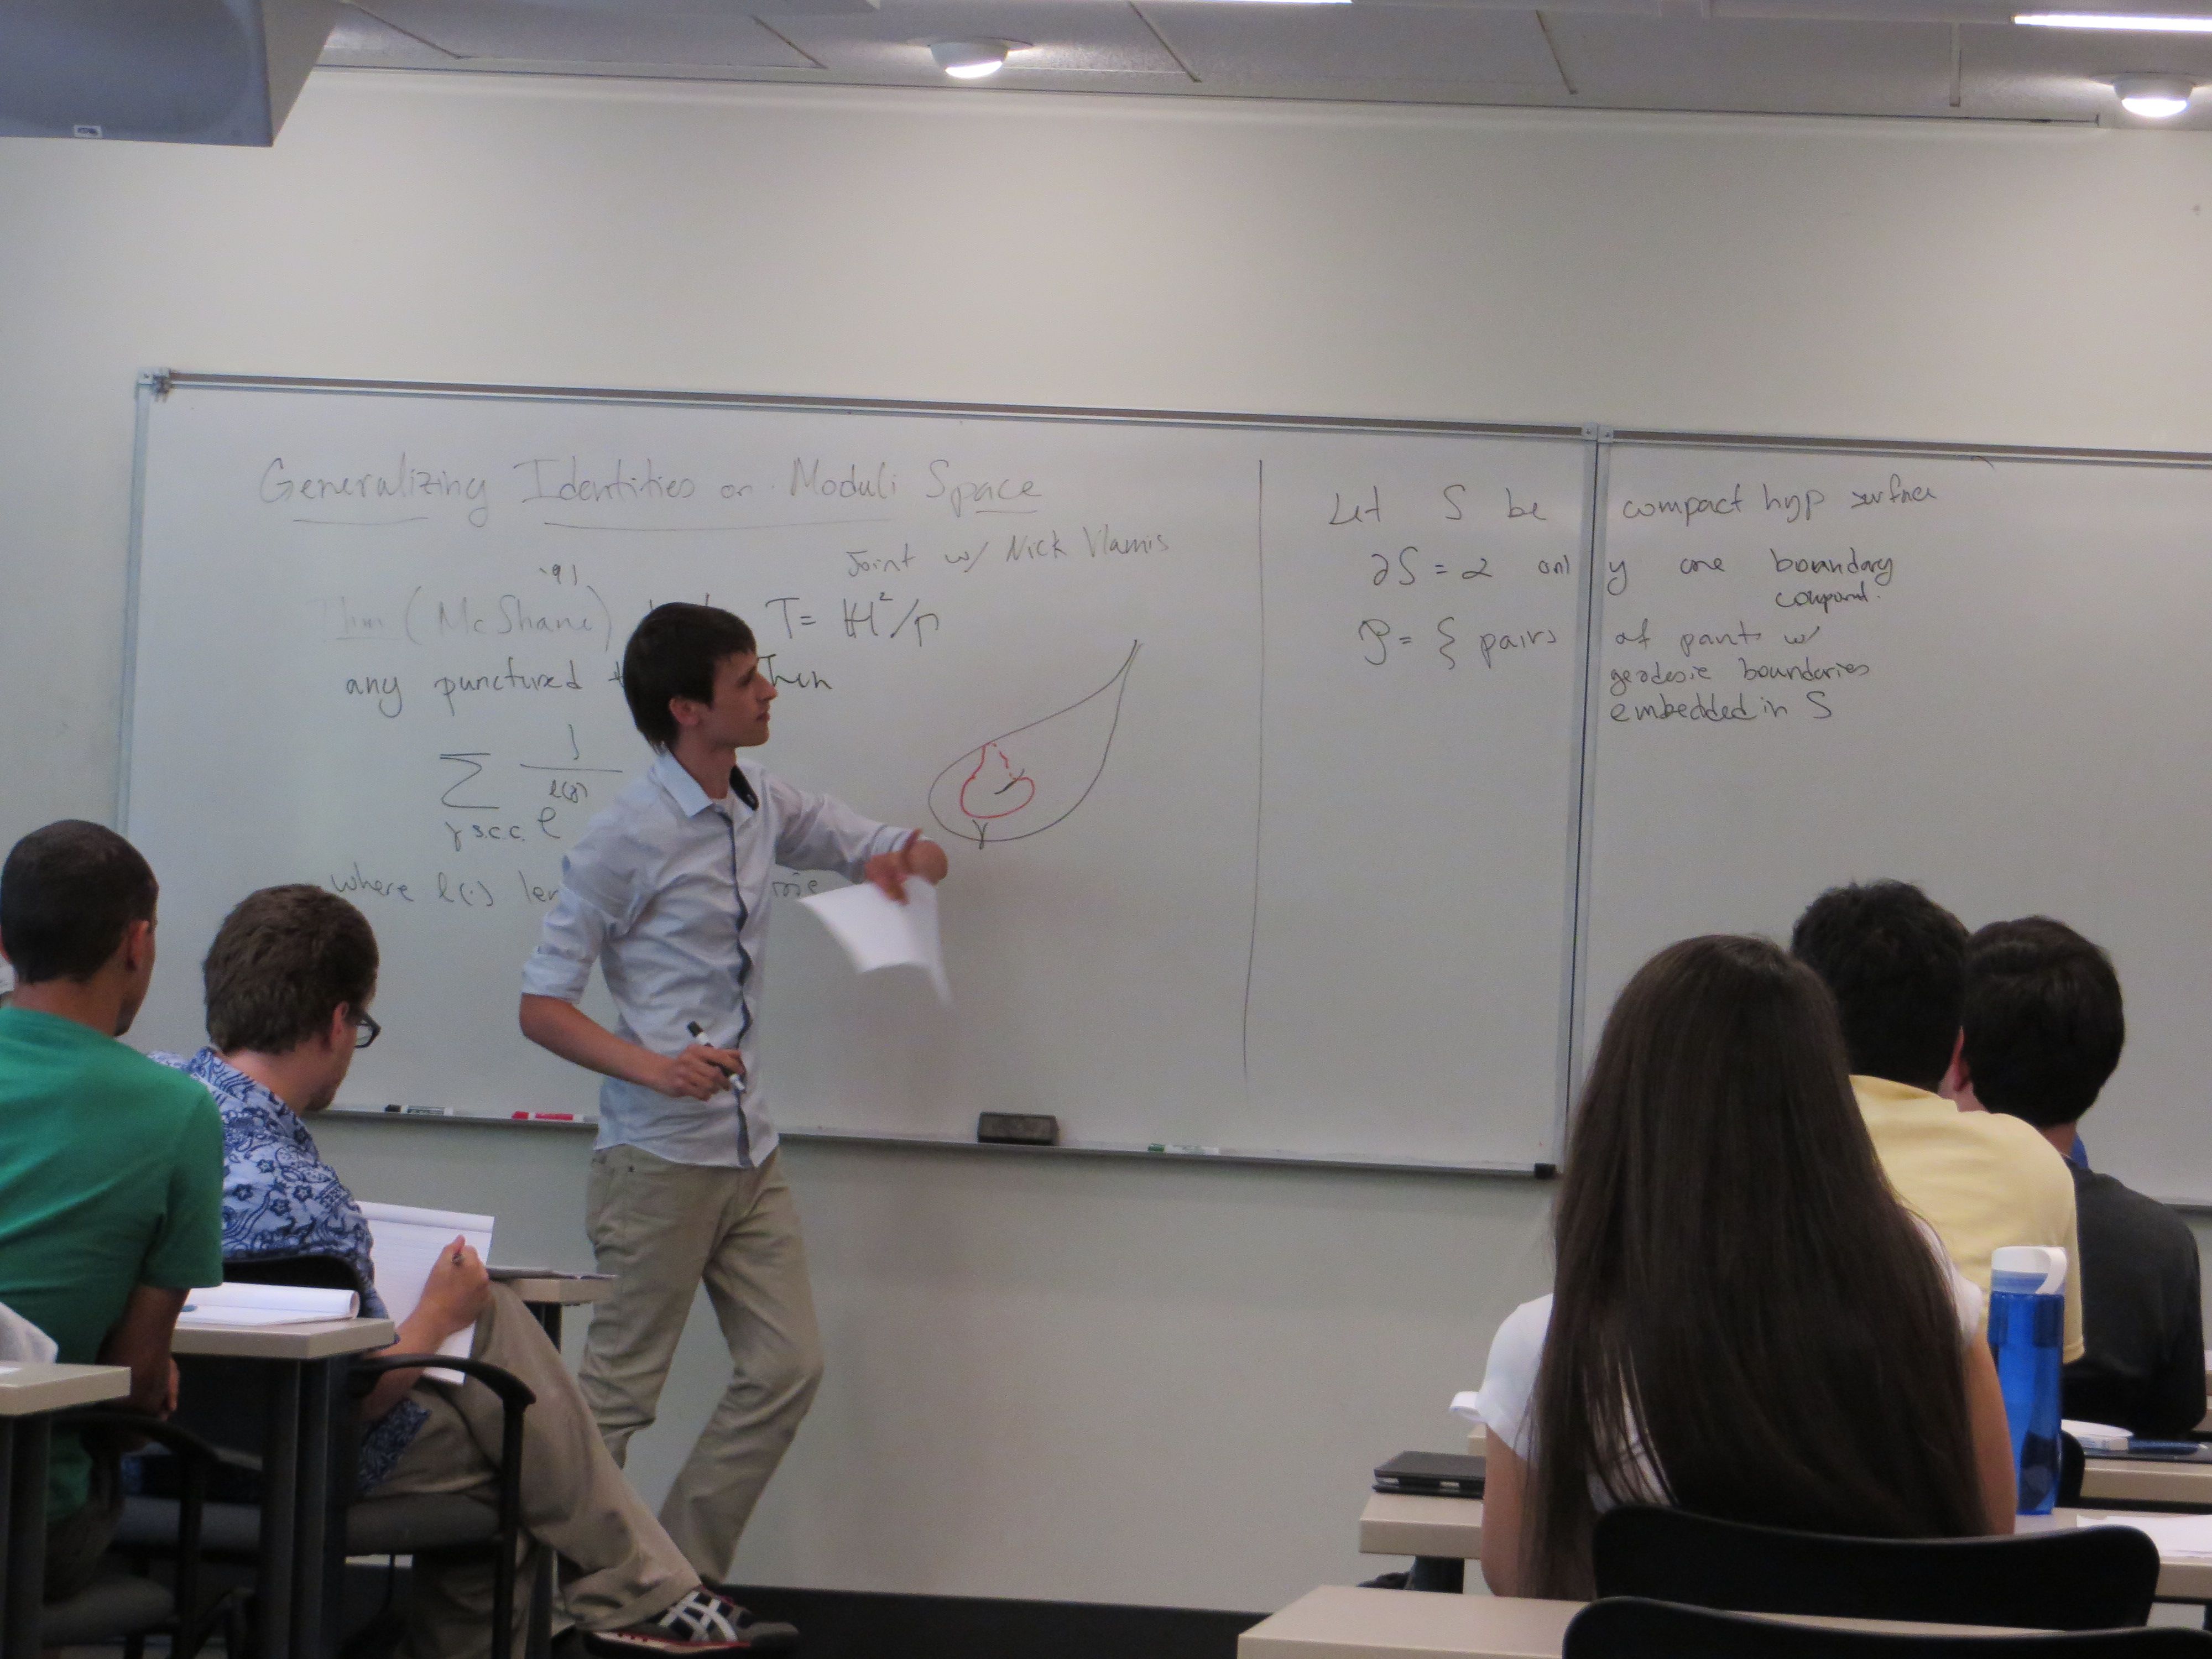 Generalizing Identities on Moduli Space
Joint w/ Nick Vlamis
'91
Thm (McShane) T = ℍ²/Γ
any punctured Then
∑ 1
γ s.c.c. e^ℓ(γ)
where ℓ(·) len
γ
Let S be compact hyp surface
∂S = α only one boundary
component.
𝒫 = { pairs of pants w/
geodesic boundaries
embedded in S